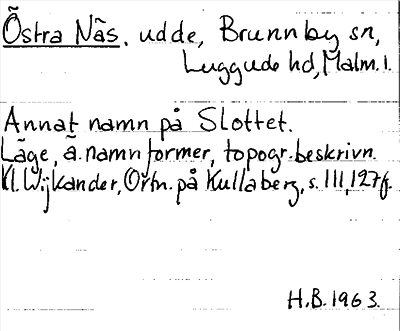 Östra Näs, udde, Brunnby sn,
Luggude hd, Malm. l.
Annat namn på Slottet.
Läge, ä. namnformer, topogr. beskrivn.
Kl. Wijkander, Ortn. på Kullaberg, s. 111, 127 f.
H.B. 1963.